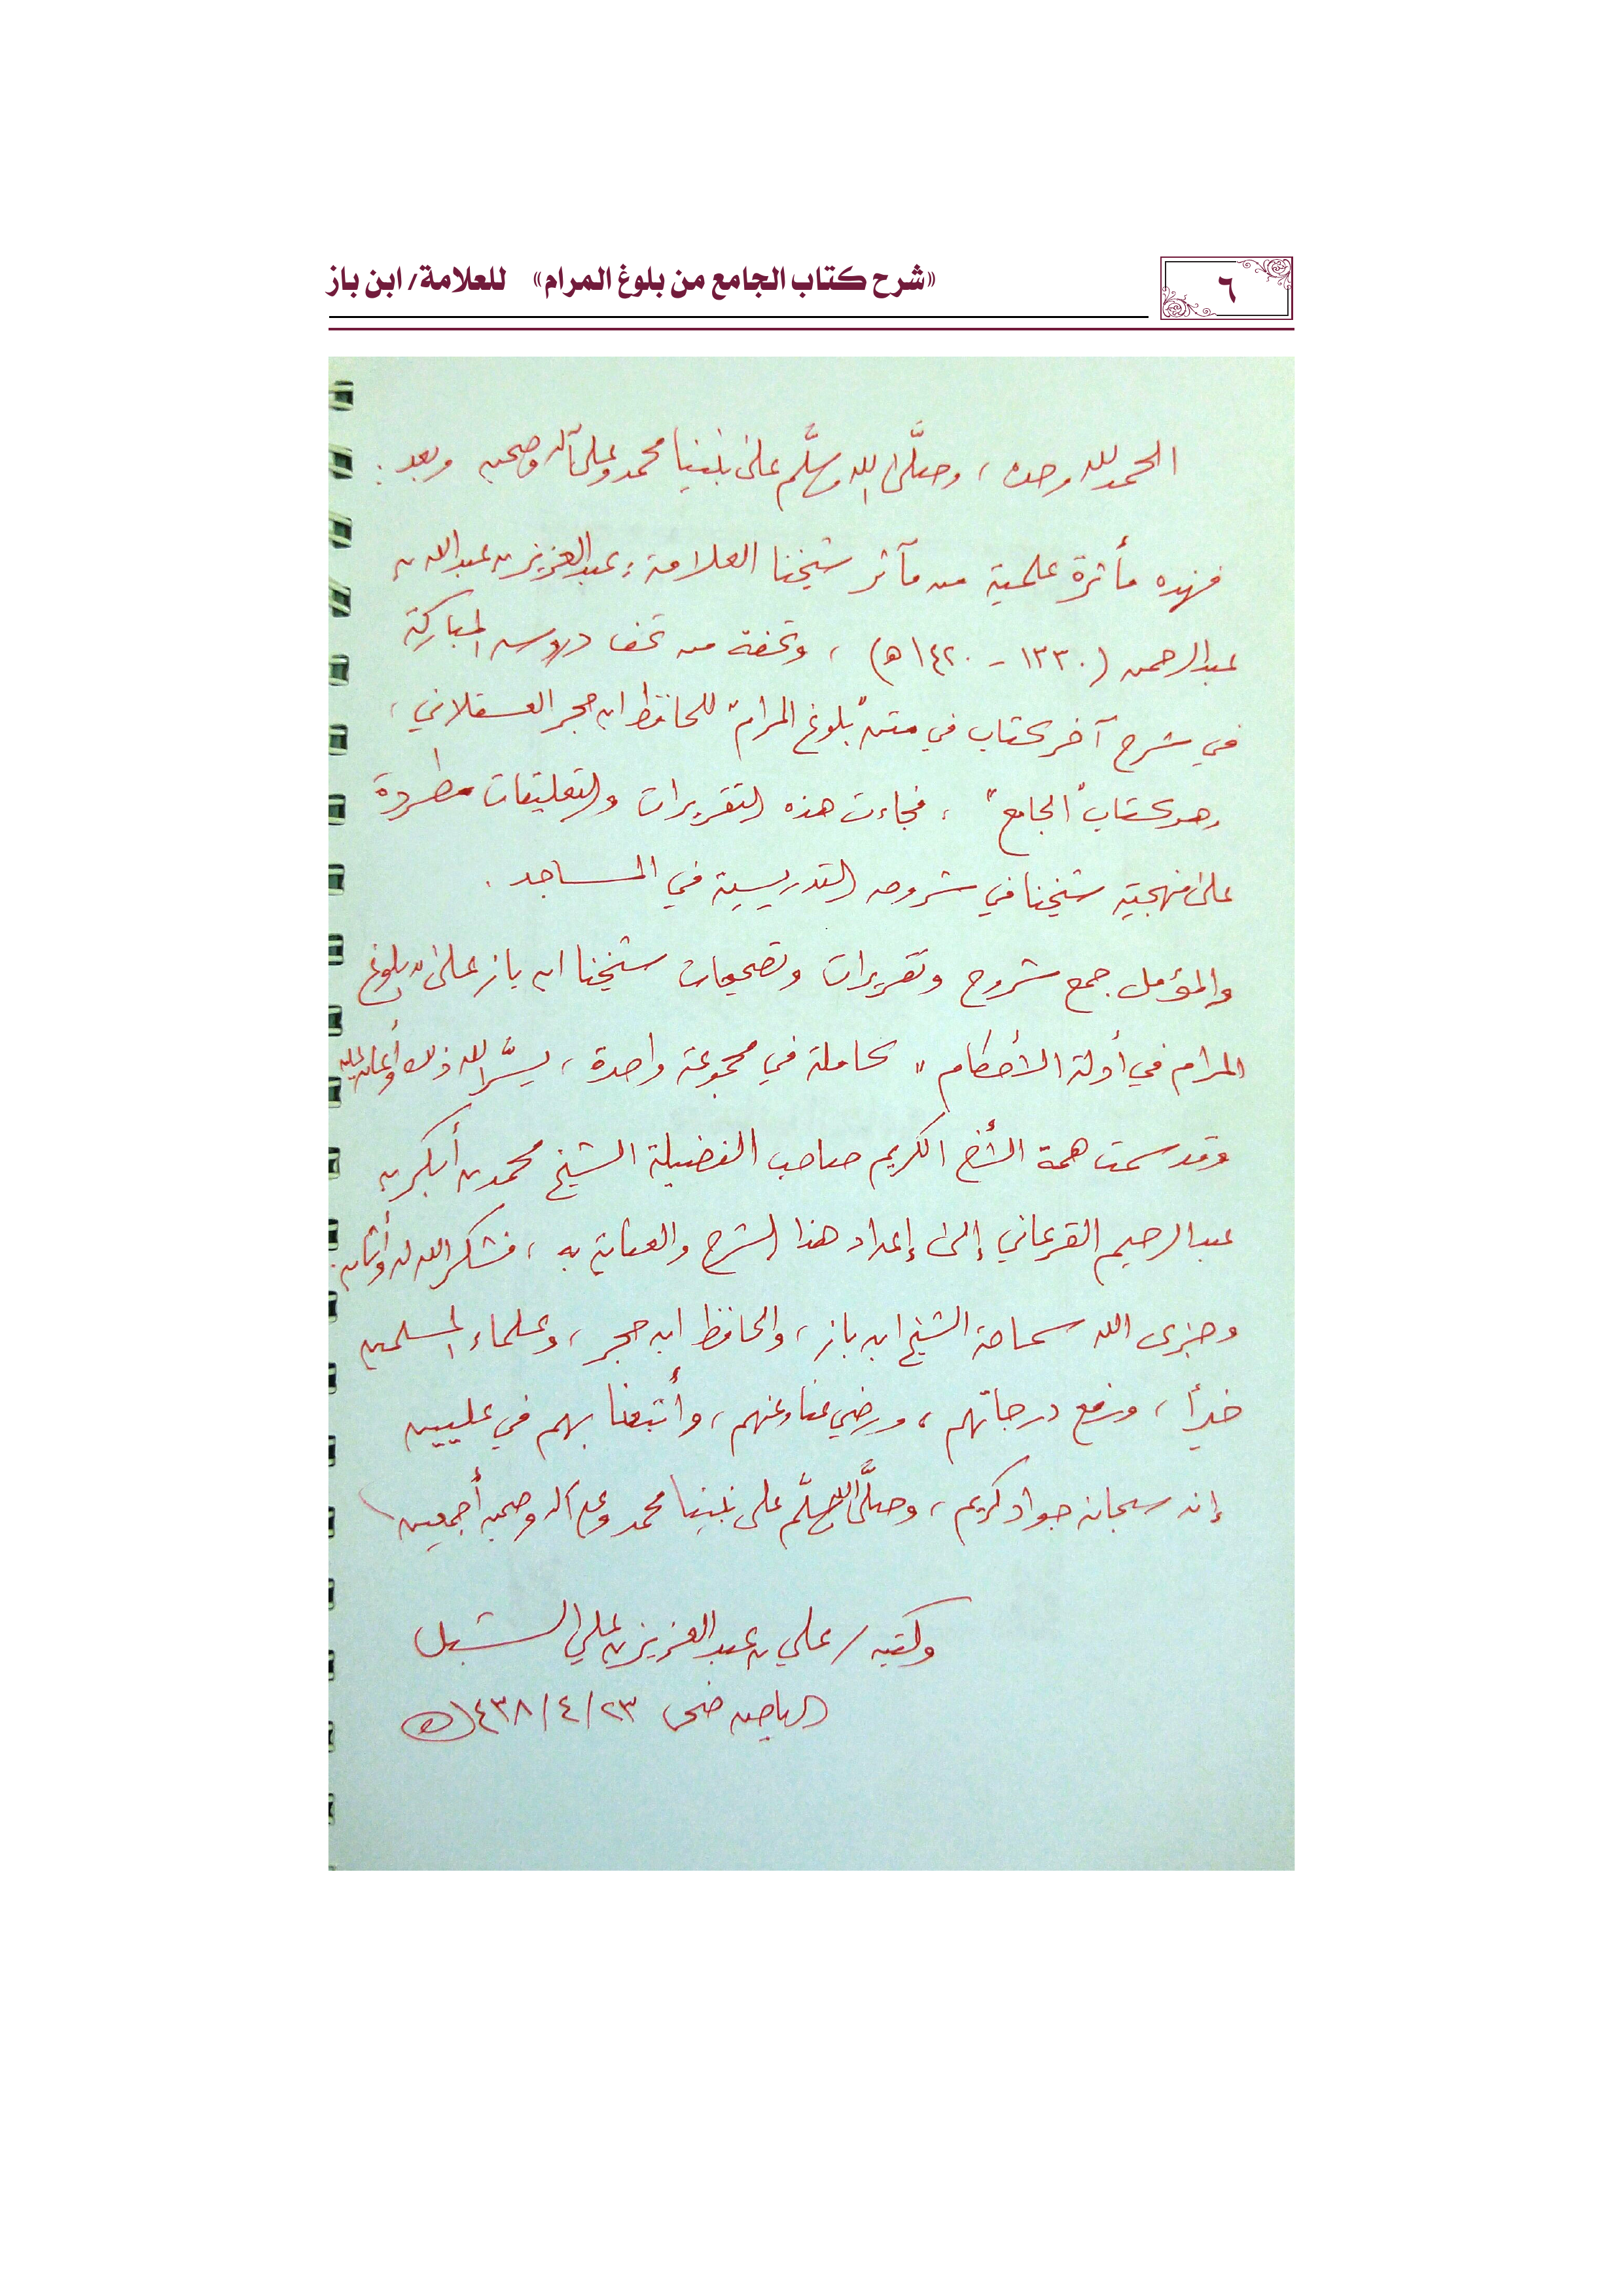 ٦
«شرح كتاب الجامع من بلوغ المرام» للعلامة/ ابن باز
الحمد لله وحده، وصلَّى الله وسلَّم على نبينا محمد وعلى آله وصحبه وبعد:
فهذه مأثرة علمية من مآثر شيخنا العلامة: عبدالعزيز بن عبدالله بن
عبدالرحمن (١٣٣٠ - ١٤٢٠هـ)، وتحفة من تحف دروسه المباركة
في شرح آخر كتاب في متن "بلوغ المرام" للحافظ ابن حجر العسقلاني،
وهو كتاب "الجامع"، فجاءت هذه التقريرات والتعليقات مطردة
على منهجية شيخنا في شروحه التدريسية في المساجد.
والمؤمل جمع شروح وتقريرات وتصحيحات شيخنا ابن باز على "بلوغ
المرام في أدلة الأحكام" كاملة في مجموعة واحدة، يسَّر الله ذلك وأعان عليه
وقد سمت همة الأخ الكريم صاحب الفضيلة الشيخ محمد بن أبكر بن
عبدالرحيم القرعاني إلى إعداد هذا الشرح والعناية به، فشكر الله له وأثابه.
وجزى الله سماحة الشيخ ابن باز، والحافظ ابن حجر، وعلماء المسلمين
خيراً، ورفع درجاتهم، ورضي عنا وعنهم، وأتبعنا بهم في عليين
إنه سبحانه جواد كريم، وصلَّى الله وسلَّم على نبينا محمد وعلى آله وصحبه أجمعين
وكتبه / علي بن عبدالعزيز بن علي الشبل
الرياض ضحى ٢٣/٤/١٤٣٨هـ